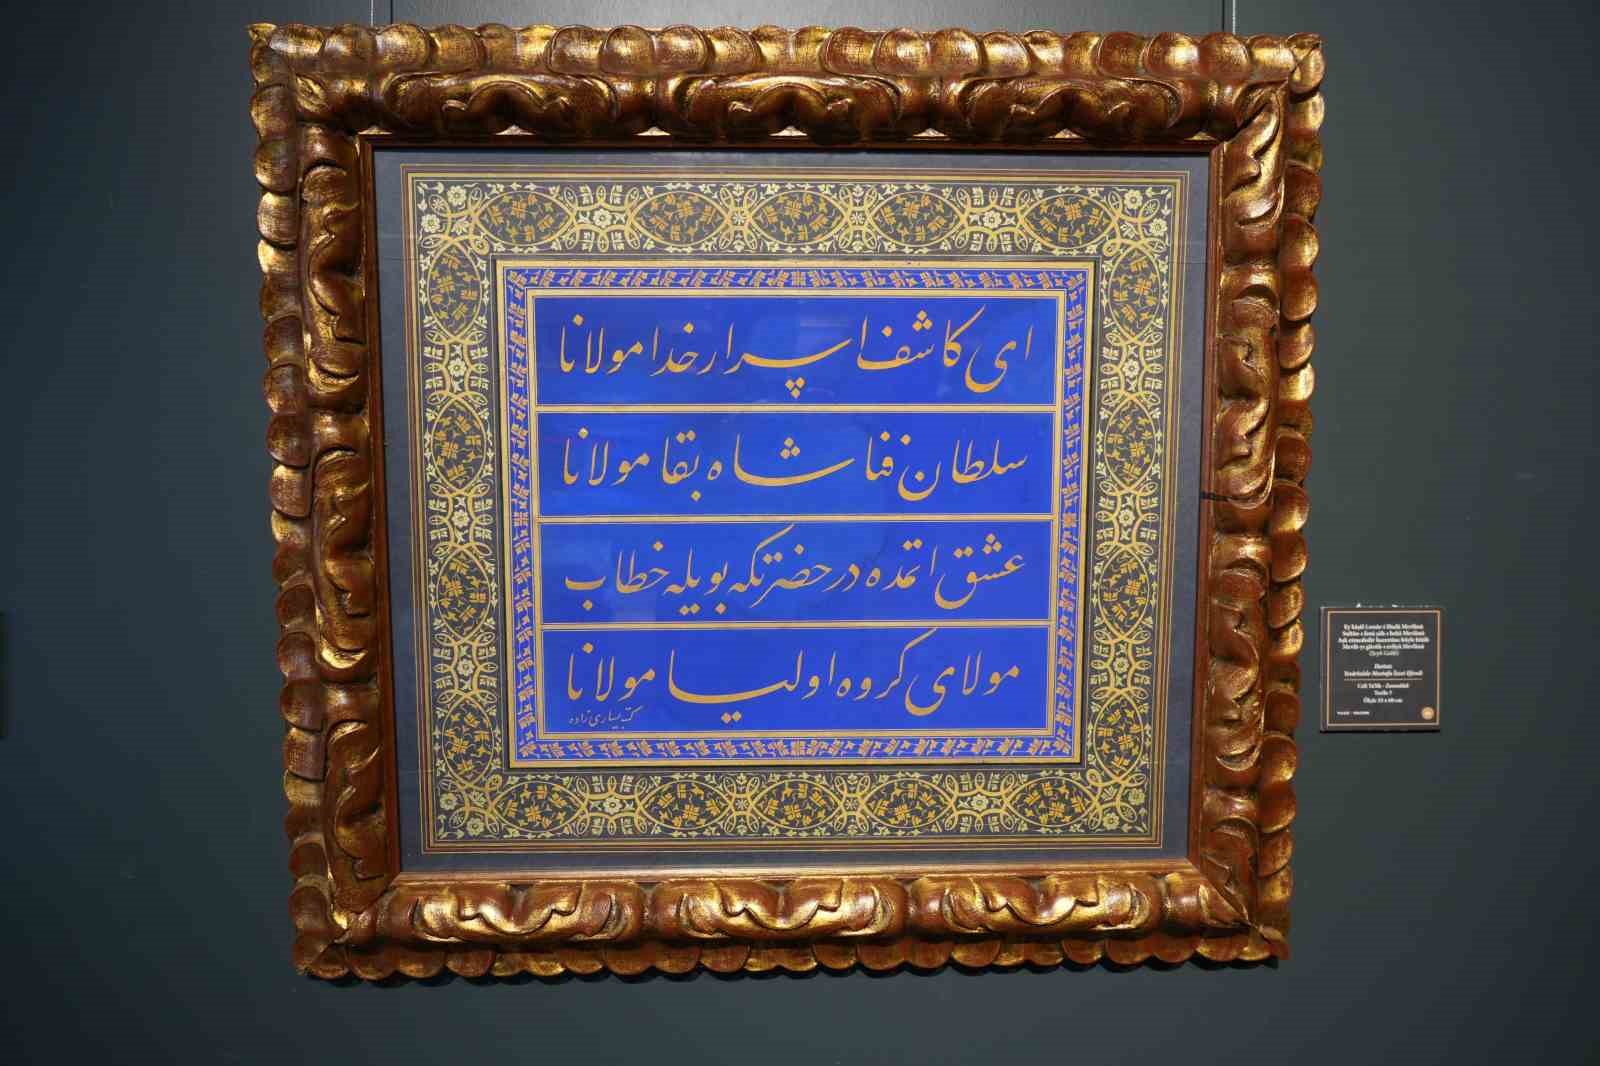 ای کاشف اسرار خدا مولانا
سلطان فنا شاه بقا مولانا
عشق اتمده در حضرتکه بویله خطاب
مولای کروه اولیا مولانا
کتبه یساری زاده
Ey kâşif-i esrâr-ı Hudâ Mevlânâ
Sultân-ı fenâ şâh-ı bekâ Mevlânâ
Aşk etmededir hazretine böyle hitâb
Mevlâ-yı gürûh-ı evliyâ Mevlânâ
(Şeyh Galib)
Hattat:
Yesârîzâde Mustafa İzzet Efendi
Celî Ta'lik - Zerendûd
Tarih: ?